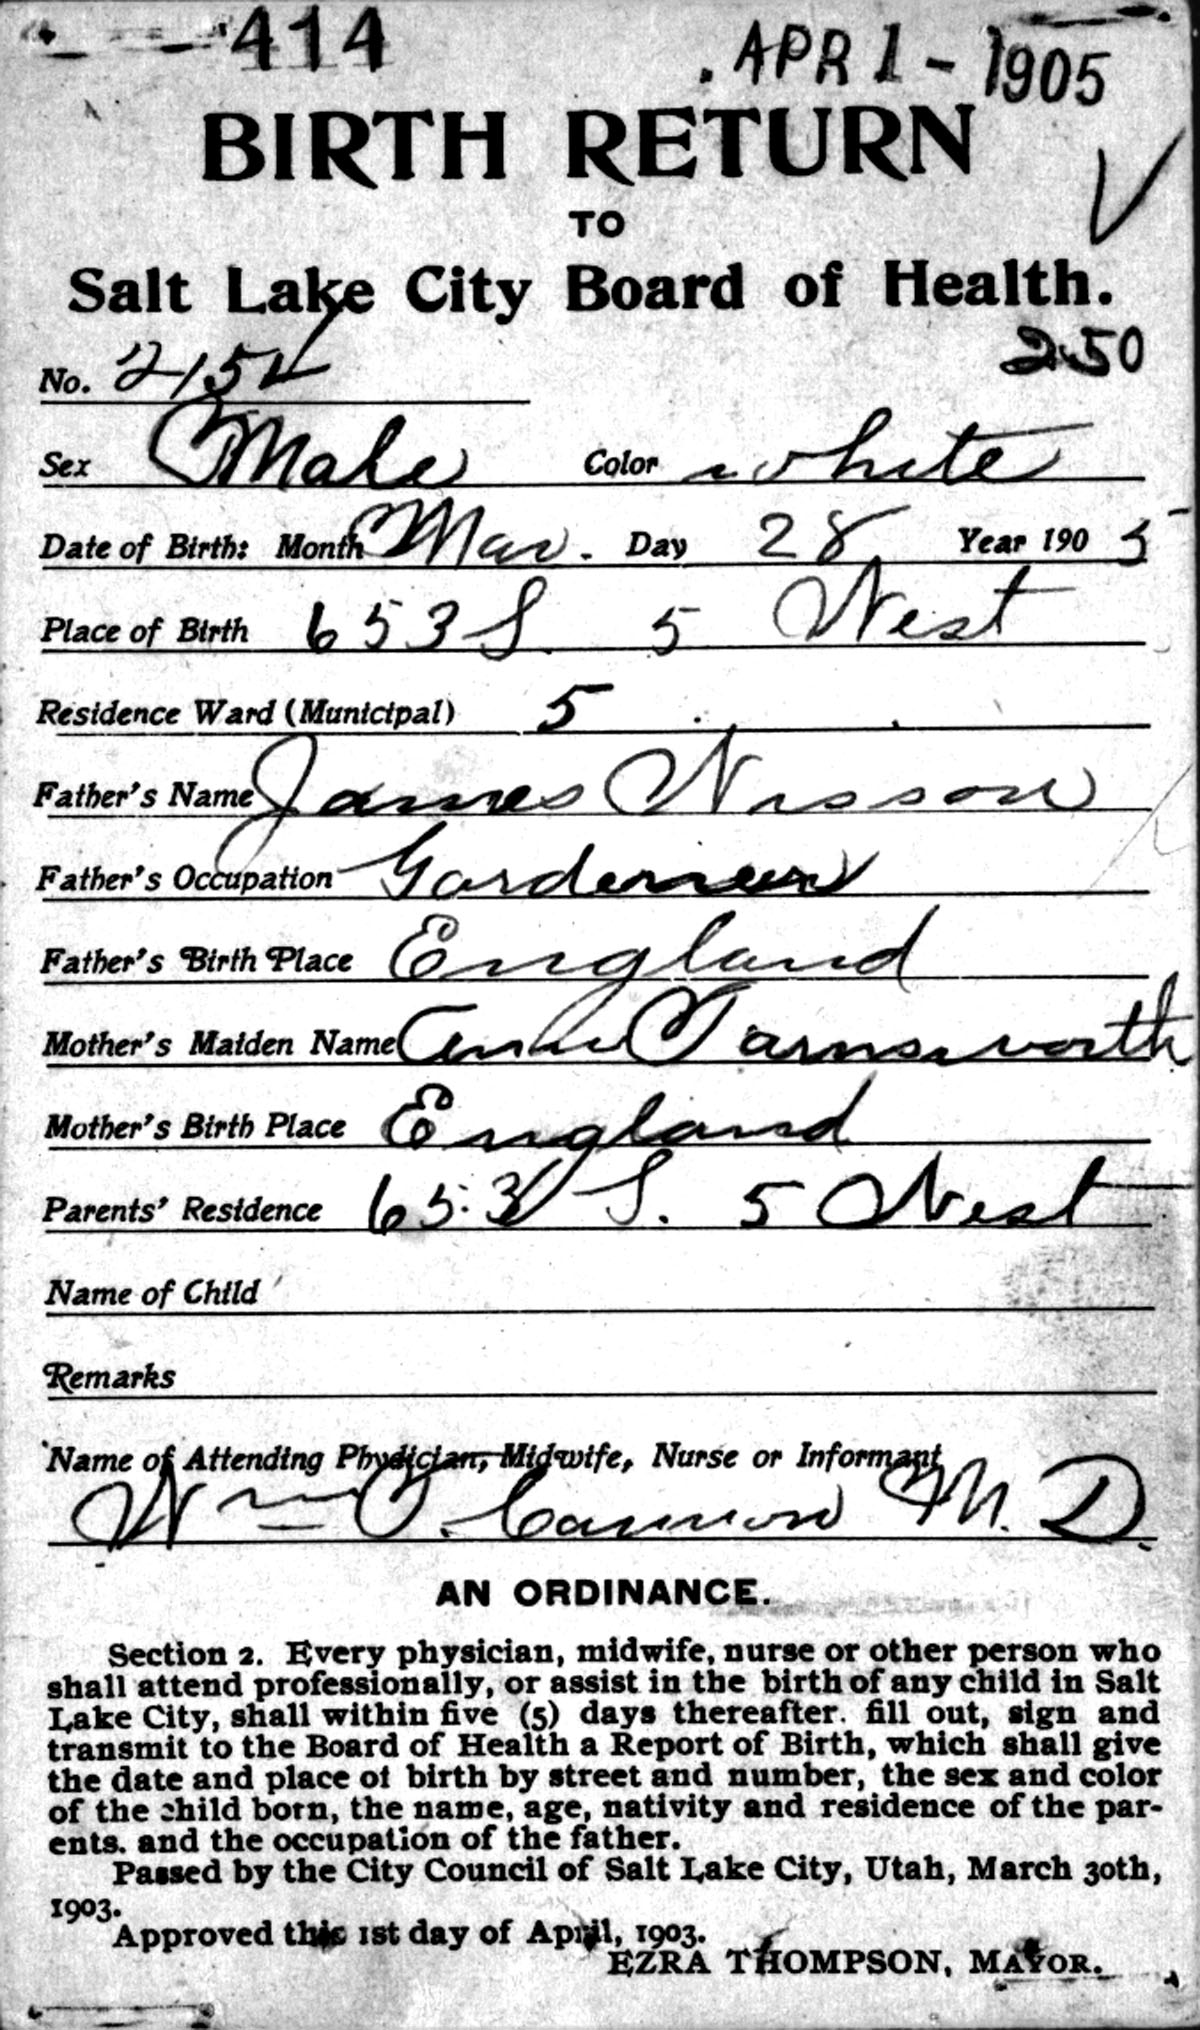 414
APR 1 - 1905
BIRTH RETURN
TO
Salt Lake City Board of Health.
No. 2154
250
Sex Male Color white
Date of Birth: Month Mar. Day 28 Year 1905
Place of Birth 653 S. 5 West
Residence Ward (Municipal) 5
Father's Name James Nisson
Father's Occupation
Father's Birth Place England
Mother's Maiden Name Farnsworth
Mother's Birth Place England
Parents' Residence 653 S. 5 West
Name of Child
Remarks
Name of Attending Physician, Midwife, Nurse or Informant
Wm Cannon M. D.
AN ORDINANCE.
Section 2. Every physician, midwife, nurse or other person who
shall attend professionally, or assist in the birth of any child in Salt
Lake City, shall within five (5) days thereafter. fill out, sign and
transmit to the Board of Health a Report of Birth, which shall give
the date and place of birth by street and number, the sex and color
of the child born, the name, age, nativity and residence of the par-
ents. and the occupation of the father.
Passed by the City Council of Salt Lake City, Utah, March 30th,
1903.
Approved this 1st day of April, 1903.
EZRA THOMPSON, MAYOR.